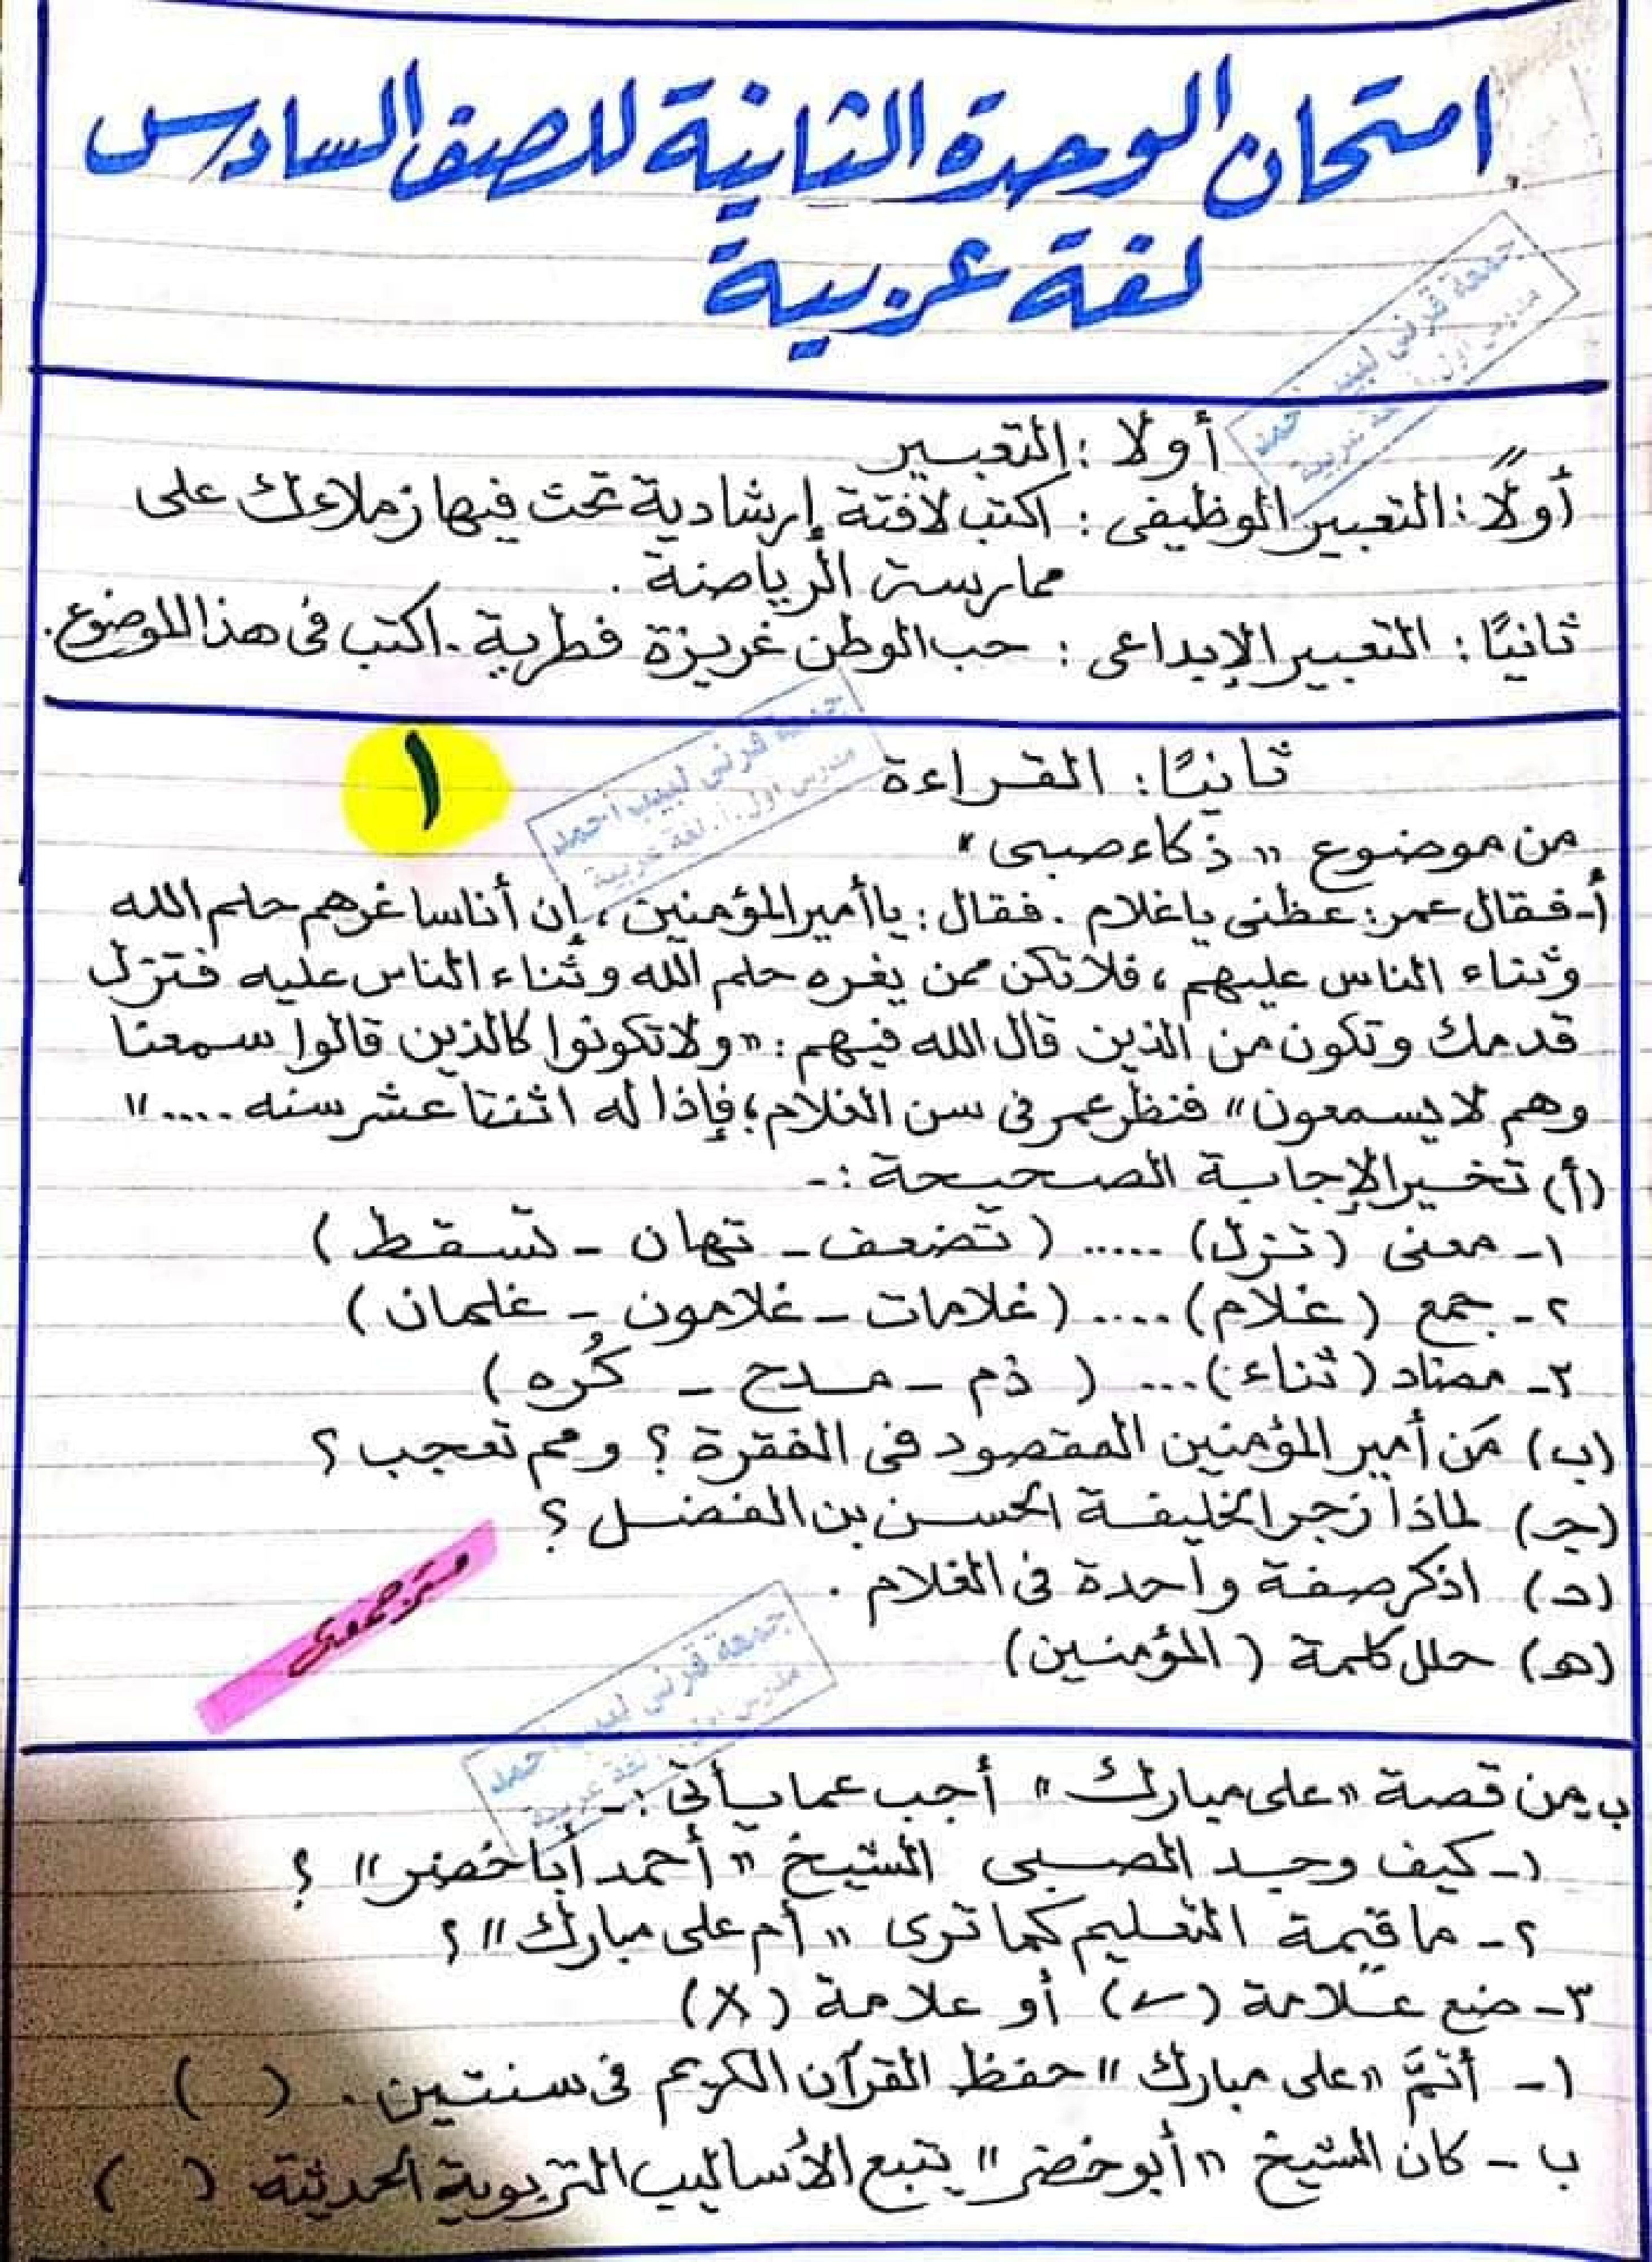 امتحان الوحدة الثانية للصف السادس
لغة عربية
جمعة قرني لبيب أحمد
مدرس أول أ. لغة عربية
أولا : التعبير
أولًا : التعبير الوظيفى : اكتب لافتة إرشادية تحث فيها زملاءك على
ممارسة الرياضة .
ثانيًا : التعبير الإبداعى : حب الوطن غريزة فطرية . اكتب فى هذا الموضوع .
ثانيًا : القراءة
١
جمعة قرني لبيب أحمد
مدرس أول أ. لغة عربية
من موضوع " ذكاء صبى "
أ- فقال عمر : عظنى يا غلام . فقال : يا أمير المؤمنين ، إن أناسا غرهم حلم الله
وثناء الناس عليهم ، فلا تكن ممن يغره حلم الله وثناء الناس عليه فتزل
قدمك وتكون من الذين قال الله فيهم : " ولا تكونوا كالذين قالوا سمعنا
وهم لا يسمعون " فنظر عمر فى سن الغلام ؛ فإذا له اثنتا عشر سنه .... "
(أ) تخير الإجابة الصحيحة :-
١- معنى (تزل) ..... ( تضعف - تهان - تسقط )
٢- جمع (غلام) .... (غلامات - غلامون - غلمان )
٣- مضاد (ثناء) ... ( ذم - مدح - كُره )
(ب) مَن أمير المؤمنين المقصود فى الفقرة ؟ ومم تعجب ؟
(جـ) لماذا زجر الخليفة الحسن بن الفضل ؟
(د) اذكر صفة واحدة فى الغلام .
(هـ) حلل كلمة ( المؤمنين )
جمعة قرني لبيب أحمد
مدرس أول أ. لغة عربية
ب- من قصة " على مبارك " أجب عما يأتى :-
١- كيف وجد الصبى الشيخ " أحمد أبا خضر " ؟
٢- ما قيمة التعليم كما ترى " أم على مبارك " ؟
٣- ضع علامة (✓) أو علامة (X)
١- أتمَّ " على مبارك " حفظ القرآن الكريم فى سنتين . ( )
ب- كان الشيخ " أبو خضر " يتبع الأساليب التربوية الحديثة ( )